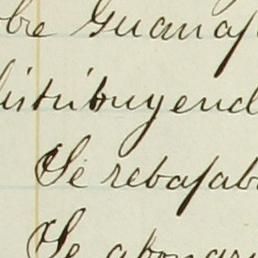 bre Guanaj
distribuyend
Se rebajab
Se abonar